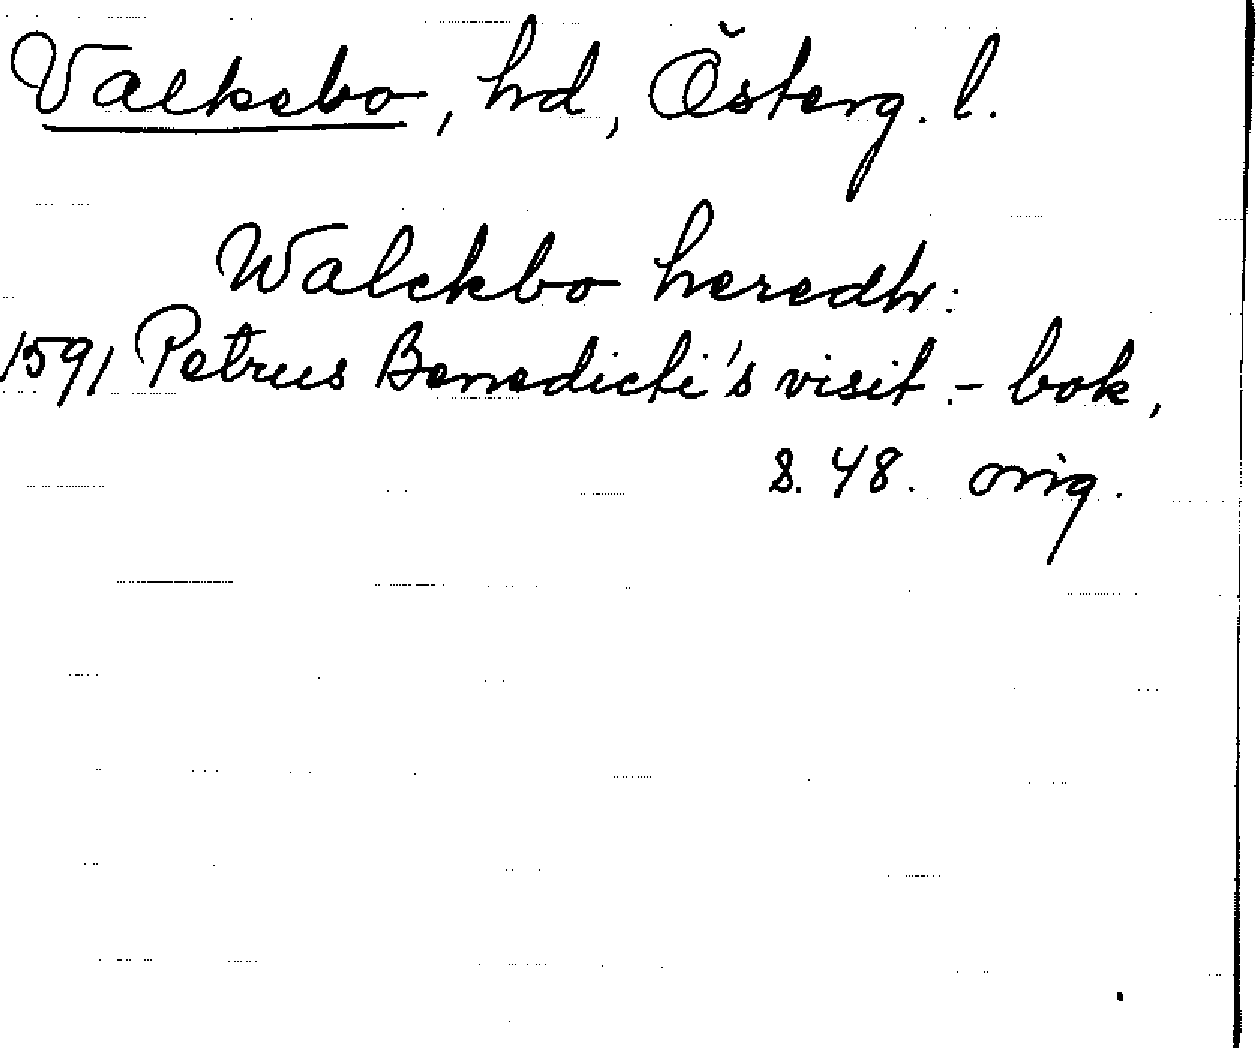 Valkebo, hd, Österg. l.
Walckbo heredh:
1591 Petrus Benedicti's visit.-bok,
s. 48. orig.